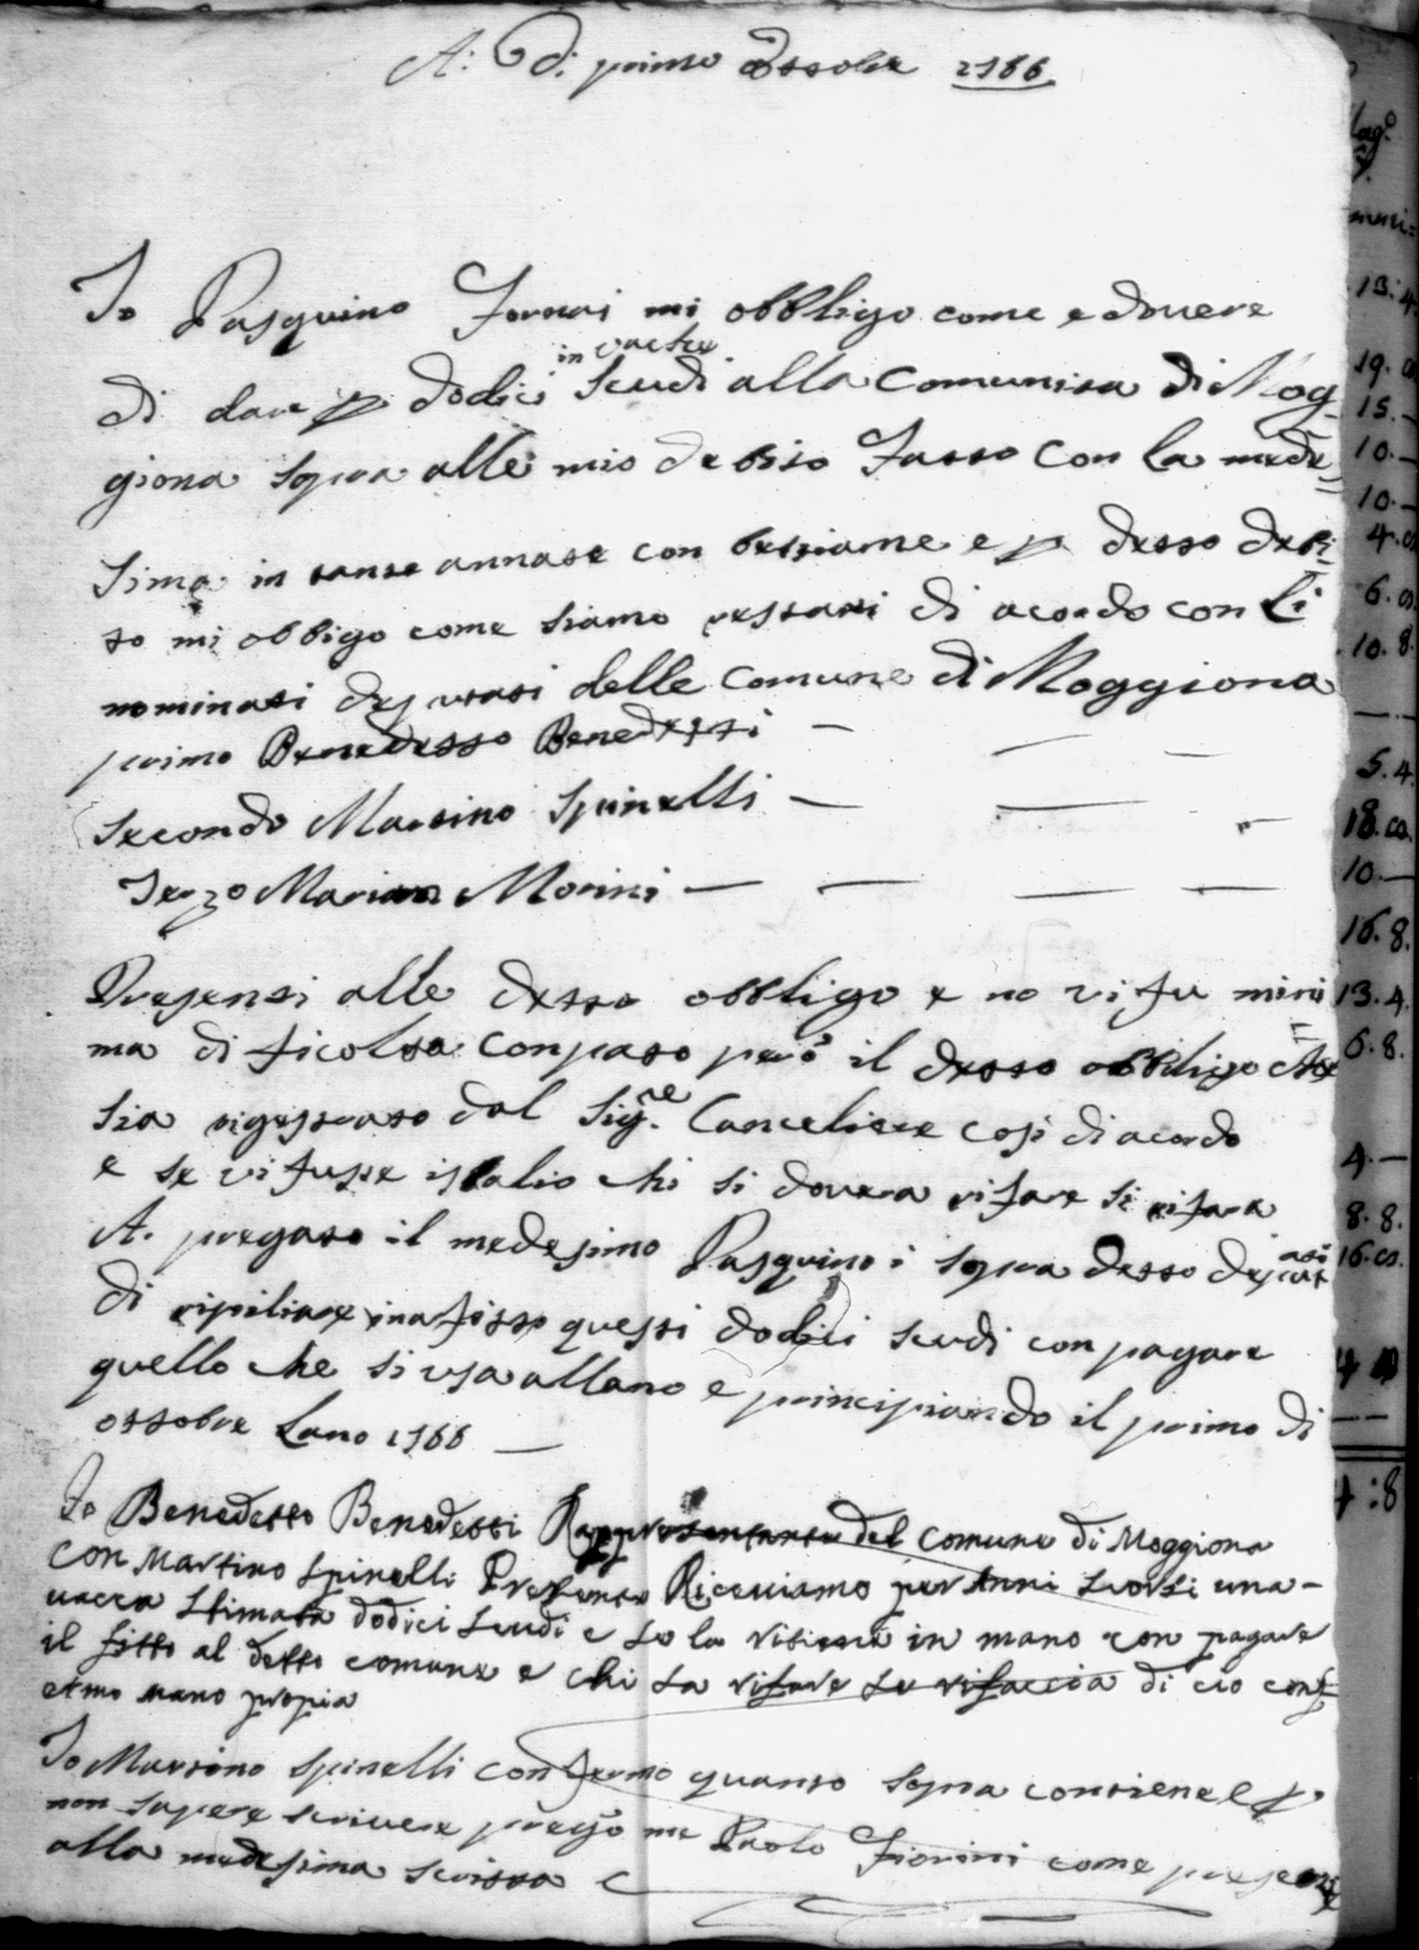 A: Dì primo Ottobre 1766
Io Pasquino Fornai mi obbligo come e dovere
in vacha
di dare p dodici scudi alla Comunita di Mog
giona sopra alle mio debito Fatto con la mede
sima in tante annate con bestiame e p detto debi
to mi obbigo come siamo restati di acordo con Li
nominati deputati delle Comune di Moggiona
primo Benedetto Benedetti —
secondo Martino Spinelli —
Terzo Mariano Morini —
Presenti alle detto obbligo e no vi fu mini
ma dificolta con pato però il detto obbligo che
sia rigestrato dal Sig.re Canceliere cosi di acordo
e se vi fusse isbalio chi si dovera rifare si rifara
A. pregato il medesimo Pasquino i sopra detto deputati
di ripiliare ina fitto questi dodici scudi con pagare
quello che si usa allano e principiando il primo di
ottobre Lano 1766 —
Io Benedetto Benedetti Rappresentante del comune di Moggiona
con Martino Spinelli Presente Riceviamo per Anni scorsi una-
vacca stimata dodici scudi e in mano con pagare
il fitto al detto comune e chi sa rifare se rifaccia di cio conf
ermo mano propia
Io Martino Spinelli confermo quanto sopra contiene e p
non sapere scrivere pregò me Paolo Fiorini come presente
alla medesima scritta
lag.o
muni=
13:4
19.
15.—
10.—
10.—
4.
6.
10.8.
5.4.
18.
10—
16.8.
13.4.
6.8.
4.—
8.8.
16.
:8